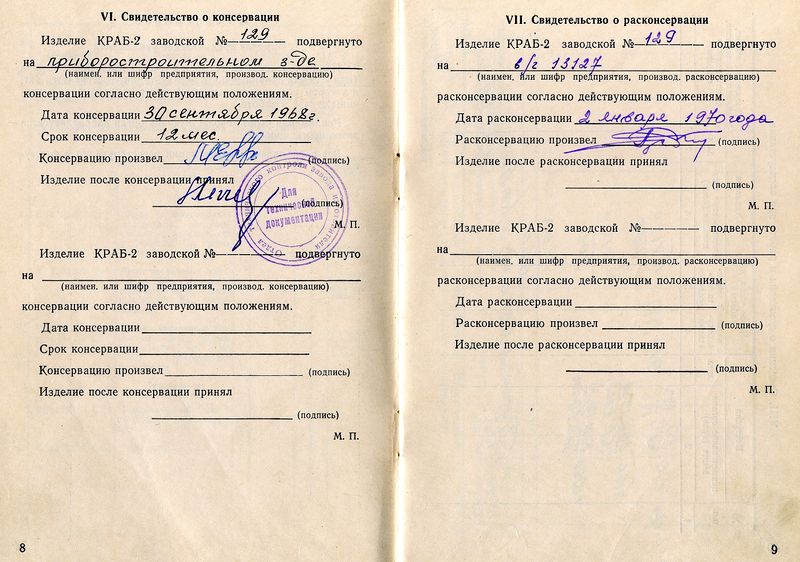 VI. Свидетельство о консервации
Изделие КРАБ-2 заводской № 129 подвергнуто
на приборостроительном з-де
(наимен. или шифр предприятия, производ. консервацию)
консервации согласно действующим положениям.
Дата консервации 30 сентября 1968г.
Срок консервации 12 мес.
Консервацию произвел (подпись)
Изделие после консервации принял
(подпись)
М. П.
Для
технической
документации
Изделие КРАБ-2 заводской № подвергнуто
на
(наимен. или шифр предприятия, производ. консервацию)
консервации согласно действующим положениям.
Дата консервации
Срок консервации
Консервацию произвел (подпись)
Изделие после консервации принял
(подпись)
М. П.
8
VII. Свидетельство о расконсервации
Изделие КРАБ-2 заводской № 129 подвергнуто
на в/г 13127
(наимен. или шифр предприятия, производ. расконсервацию)
расконсервации согласно действующим положениям.
Дата расконсервации 2 января 1970 года
Расконсервацию произвел (подпись)
Изделие после расконсервации принял
(подпись)
М. П.
Изделие КРАБ-2 заводской № подвергнуто
на
(наимен. или шифр предприятия, производ. расконсервацию)
расконсервации согласно действующим положениям.
Дата расконсервации
Расконсервацию произвел (подпись)
Изделие после расконсервации принял
(подпись)
М. П.
9